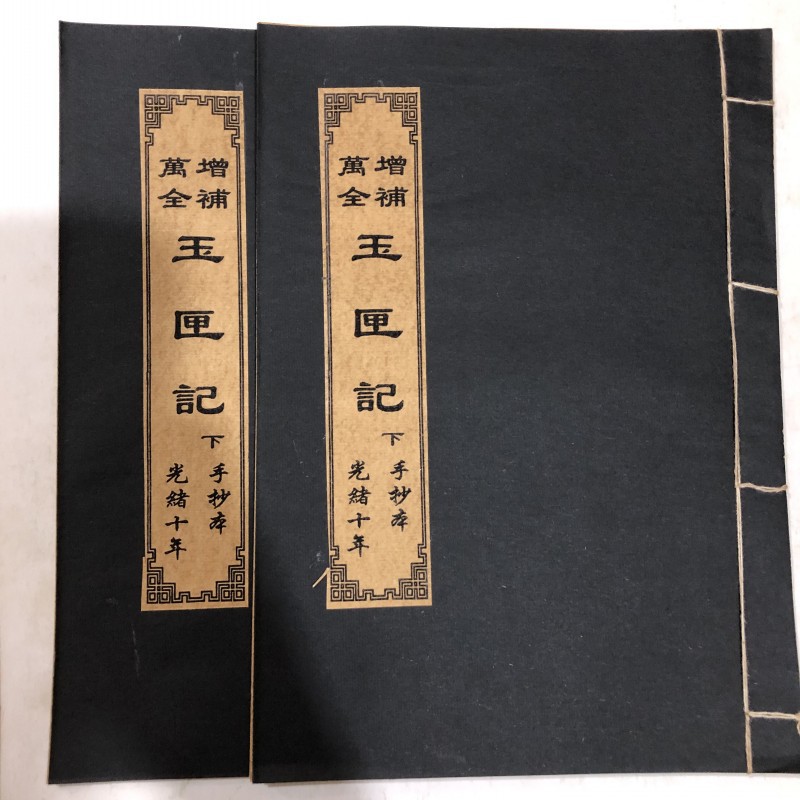 增補
萬全
玉匣記
下
手抄本
光緒十年
增補
萬全
玉匣記
下
手抄本
光緒十年